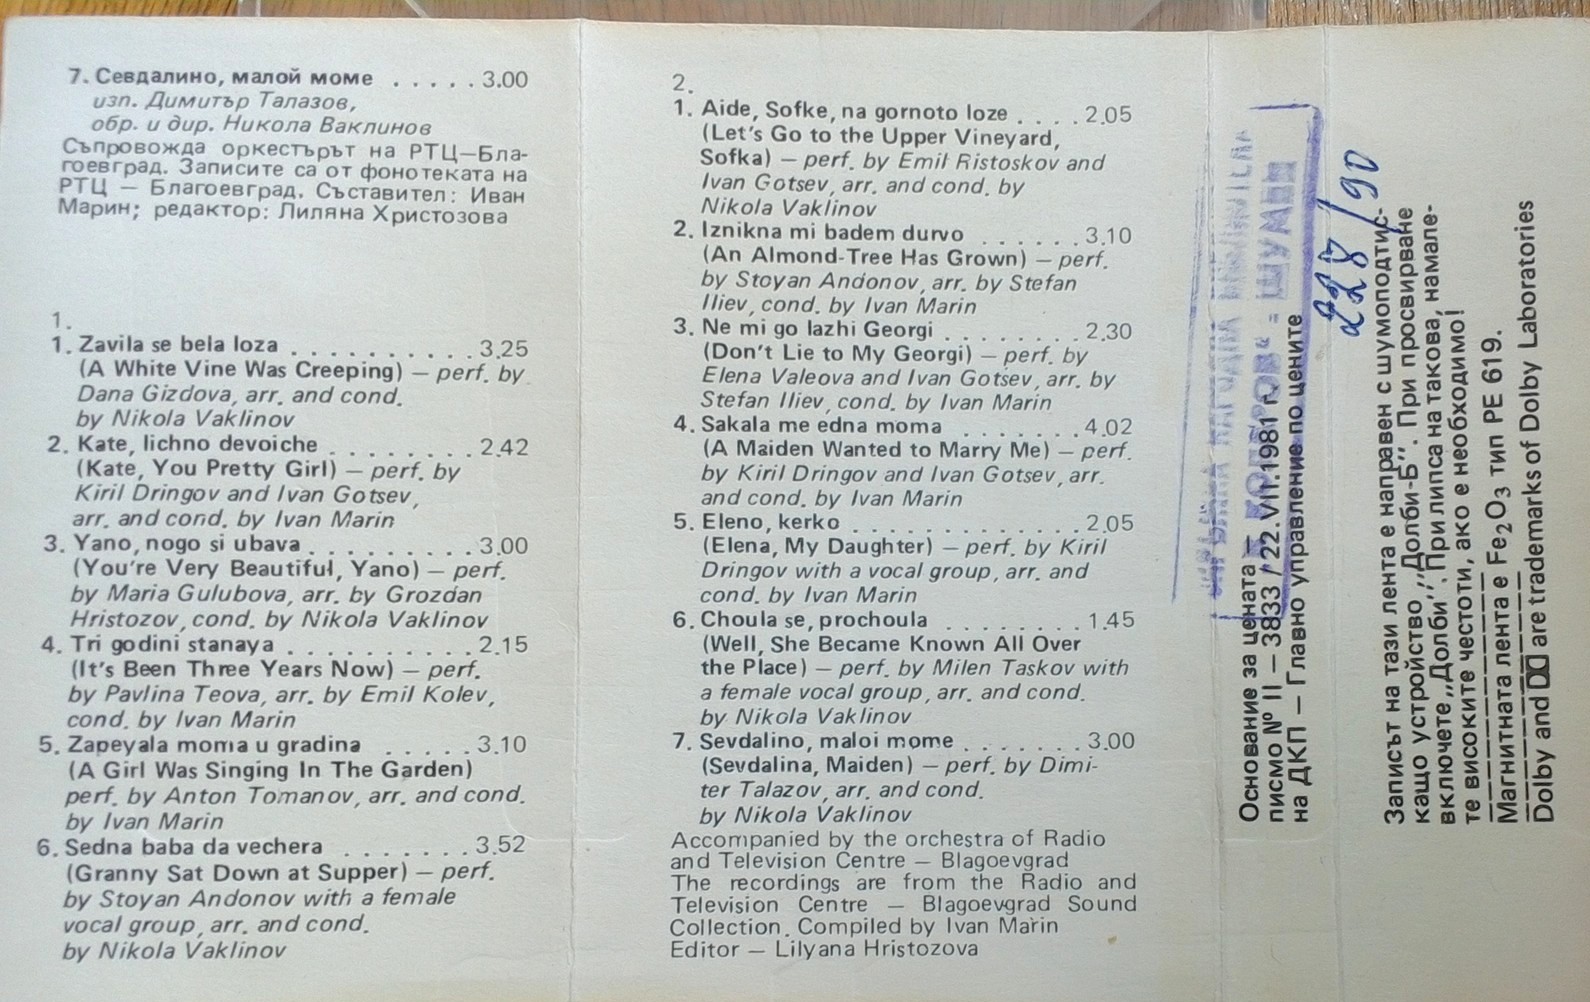 7. Севдалино, малой моме . . . . . 3.00
изп. Димитър Талазов,
обр. и дир. Никола Ваклинов
Съпровожда оркестърът на РТЦ—Бла-
гоевград. Записите са от фонотеката на
РТЦ — Благоевград. Съставител: Иван
Марин; редактор: Лиляна Христозова
1.
1. Zavila se bela loza . . . . . . . . . . 3.25
(A White Vine Was Creeping) — perf. by
Dana Gizdova, arr. and cond.
by Nikola Vaklinov
2. Kate, lichno devoiche . . . . . . . . 2.42
(Kate, You Pretty Girl) — perf. by
Kiril Dringov and Ivan Gotsev,
arr. and cond. by Ivan Marin
3. Yano, nogo si ubava . . . . . . . . . 3.00
(You're Very Beautiful, Yano) — perf.
by Maria Gulubova, arr. by Grozdan
Hristozov, cond. by Nikola Vaklinov
4. Tri godini stanaya . . . . . . . . . . 2.15
(It's Been Three Years Now) — perf.
by Pavlina Teova, arr. by Emil Kolev,
cond. by Ivan Marin
5. Zapeyala moma u gradina . . . . . 3.10
(A Girl Was Singing In The Garden)
perf. by Anton Tomanov, arr. and cond.
by Ivan Marin
6. Sedna baba da vechera . . . . . . . 3.52
(Granny Sat Down at Supper) — perf.
by Stoyan Andonov with a female
vocal group, arr. and cond.
by Nikola Vaklinov
2.
1. Aide, Sofke, na gornoto loze . . . . 2.05
(Let's Go to the Upper Vineyard,
Sofka) — perf. by Emil Ristoskov and
Ivan Gotsev, arr. and cond. by
Nikola Vaklinov
2. Iznikna mi badem durvo . . . . . . 3.10
(An Almond-Tree Has Grown) — perf.
by Stoyan Andonov, arr. by Stefan
Iliev, cond. by Ivan Marin
3. Ne mi go lazhi Georgi . . . . . . . . 2.30
(Don't Lie to My Georgi) — perf. by
Elena Valeova and Ivan Gotsev, arr. by
Stefan Iliev, cond. by Ivan Marin
4. Sakala me edna moma . . . . . . . 4.02
(A Maiden Wanted to Marry Me) — perf.
by Kiril Dringov and Ivan Gotsev, arr.
and cond. by Ivan Marin
5. Eleno, kerko . . . . . . . . . . . . . 2.05
(Elena, My Daughter) — perf. by Kiril
Dringov with a vocal group, arr. and
cond. by Ivan Marin
6. Choula se, prochoula . . . . . . . . 1.45
(Well, She Became Known All Over
the Place) — perf. by Milen Taskov with
a female vocal group, arr. and cond.
by Nikola Vaklinov
7. Sevdalino, maloi mome . . . . . . . 3.00
(Sevdalina, Maiden) — perf. by Dimi-
ter Talazov, arr. and cond.
by Nikola Vaklinov
Accompanied by the orchestra of Radio
and Television Centre — Blagoevgrad
The recordings are from the Radio and
Television Centre — Blagoevgrad Sound
Collection. Compiled by Ivan Marin
Editor — Lilyana Hristozova
Основание за цената —
писмо № II — 3833 / 22.VII.1981 г.
на ДКП — Главно управление по цените
228/90
Записът на тази лента е направен с шумоподтис-
кащо устройство „Долби-Б". При просвирване
включете „Долби". При липса на такова, намале-
те високите честоти, ако е необходимо!
Магнитната лента е Fe2O3 тип PE 619.
Dolby and are trademarks of Dolby Laboratories